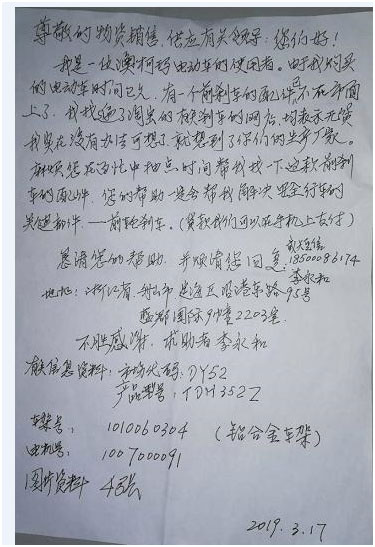 尊敬的物资销售、供应有关领导:您们好!
我是一位澳柯玛电动车的使用者。由于我购买
的电动车时间已久,有一个前刹车的配件已不在市面
上了,我找遍了淘宝的有刹车的网店,均表示无货
我实在没有办法可想了,就想到了你们的生产厂家。
麻烦您在百忙中抽点时间帮我找一下这款前刹
车的配件,您的帮助一定会帮我解决出行的
关键部件——前轮刹车。(货款我们可以在手机上支付)
恳请您的帮助,并烦请您回复:
18500086174
李永和
地址:浙江省舟山市定海区 港东路95号
国际9幢2203室.
不胜感谢,求助者李永和
有关信息资料:市场代码:DY52
产品型号:TDH352Z
车架号:1010060304(铝合金车架)
电机号:1007000091
图片资料 4张
2019.3.17